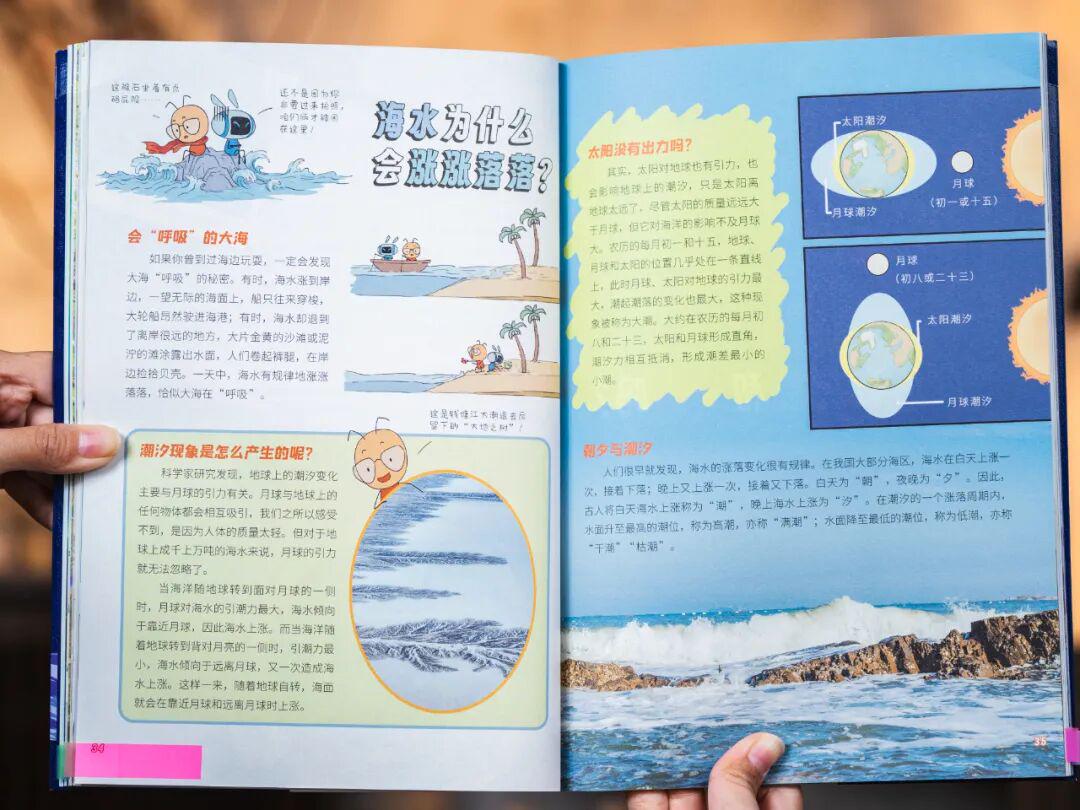 这礁石坐着有点
硌屁股……
还不是因为你
非要过来拍照，
咱们俩才被困
在这里！
海水为什么
会涨涨落落？
会“呼吸”的大海
如果你曾到过海边玩耍，一定会发现
大海“呼吸”的秘密。有时，海水涨到岸
边，一望无际的海面上，船只往来穿梭，
大轮船昂然驶进海港；有时，海水却退到
了离岸很远的地方，大片金黄的沙滩或泥
泞的滩涂露出水面，人们卷起裤腿，在岸
边捡拾贝壳。一天中，海水有规律地涨涨
落落，恰似大海在“呼吸”。
这是钱塘江大潮退去后
留下的“大地之树”！
潮汐现象是怎么产生的呢？
科学家研究发现，地球上的潮汐变化
主要与月球的引力有关。月球与地球上的
任何物体都会相互吸引，我们之所以感受
不到，是因为人体的质量太轻。但对于地
球上成千上万吨的海水来说，月球的引力
就无法忽略了。
当海洋随地球转到面对月球的一侧
时，月球对海水的引潮力最大，海水倾向
于靠近月球，因此海水上涨。而当海洋随
着地球转到背对月亮的一侧时，引潮力最
小，海水倾向于远离月球，又一次造成海
水上涨。这样一来，随着地球自转，海面
就会在靠近月球和远离月球时上涨。
34
太阳没有出力吗？
其实，太阳对地球也有引力，也
会影响地球上的潮汐，只是太阳离
地球太远了，尽管太阳的质量远远大
于月球，但它对海洋的影响不及月球
大。农历的每月初一和十五，地球、
月球和太阳的位置几乎处在一条直线
上，此时月球、太阳对地球的引力最
大，潮起潮落的变化也最大，这种现
象被称为大潮。大约在农历的每月初
八和二十三，太阳和月球形成直角，
潮汐力相互抵消，形成潮差最小的
小潮。
太阳潮汐
月球
（初一或十五）
月球潮汐
月球
（初八或二十三）
太阳潮汐
月球潮汐
朝夕与潮汐
人们很早就发现，海水的涨落变化很有规律。在我国大部分海区，海水在白天上涨一
次，接着下落；晚上又上涨一次，接着又下落。白天为“朝”，夜晚为“夕”。因此，
古人将白天海水上涨称为“潮”，晚上海水上涨为“汐”。在潮汐的一个涨落周期内，
水面升至最高的潮位，称为高潮，亦称“满潮”；水面降至最低的潮位，称为低潮，亦称
“干潮”“枯潮”。
35